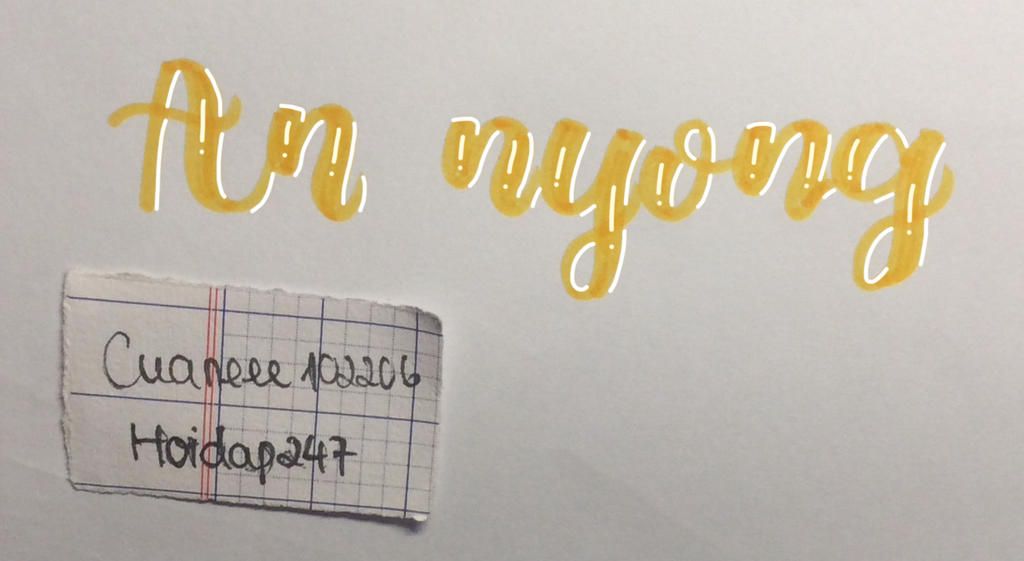 An nyong
Cuaneee102206
Hoidap247